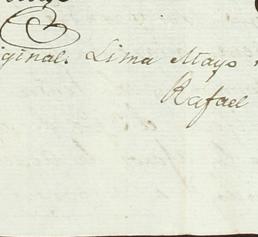 iginal. Lima Mayo
Rafael